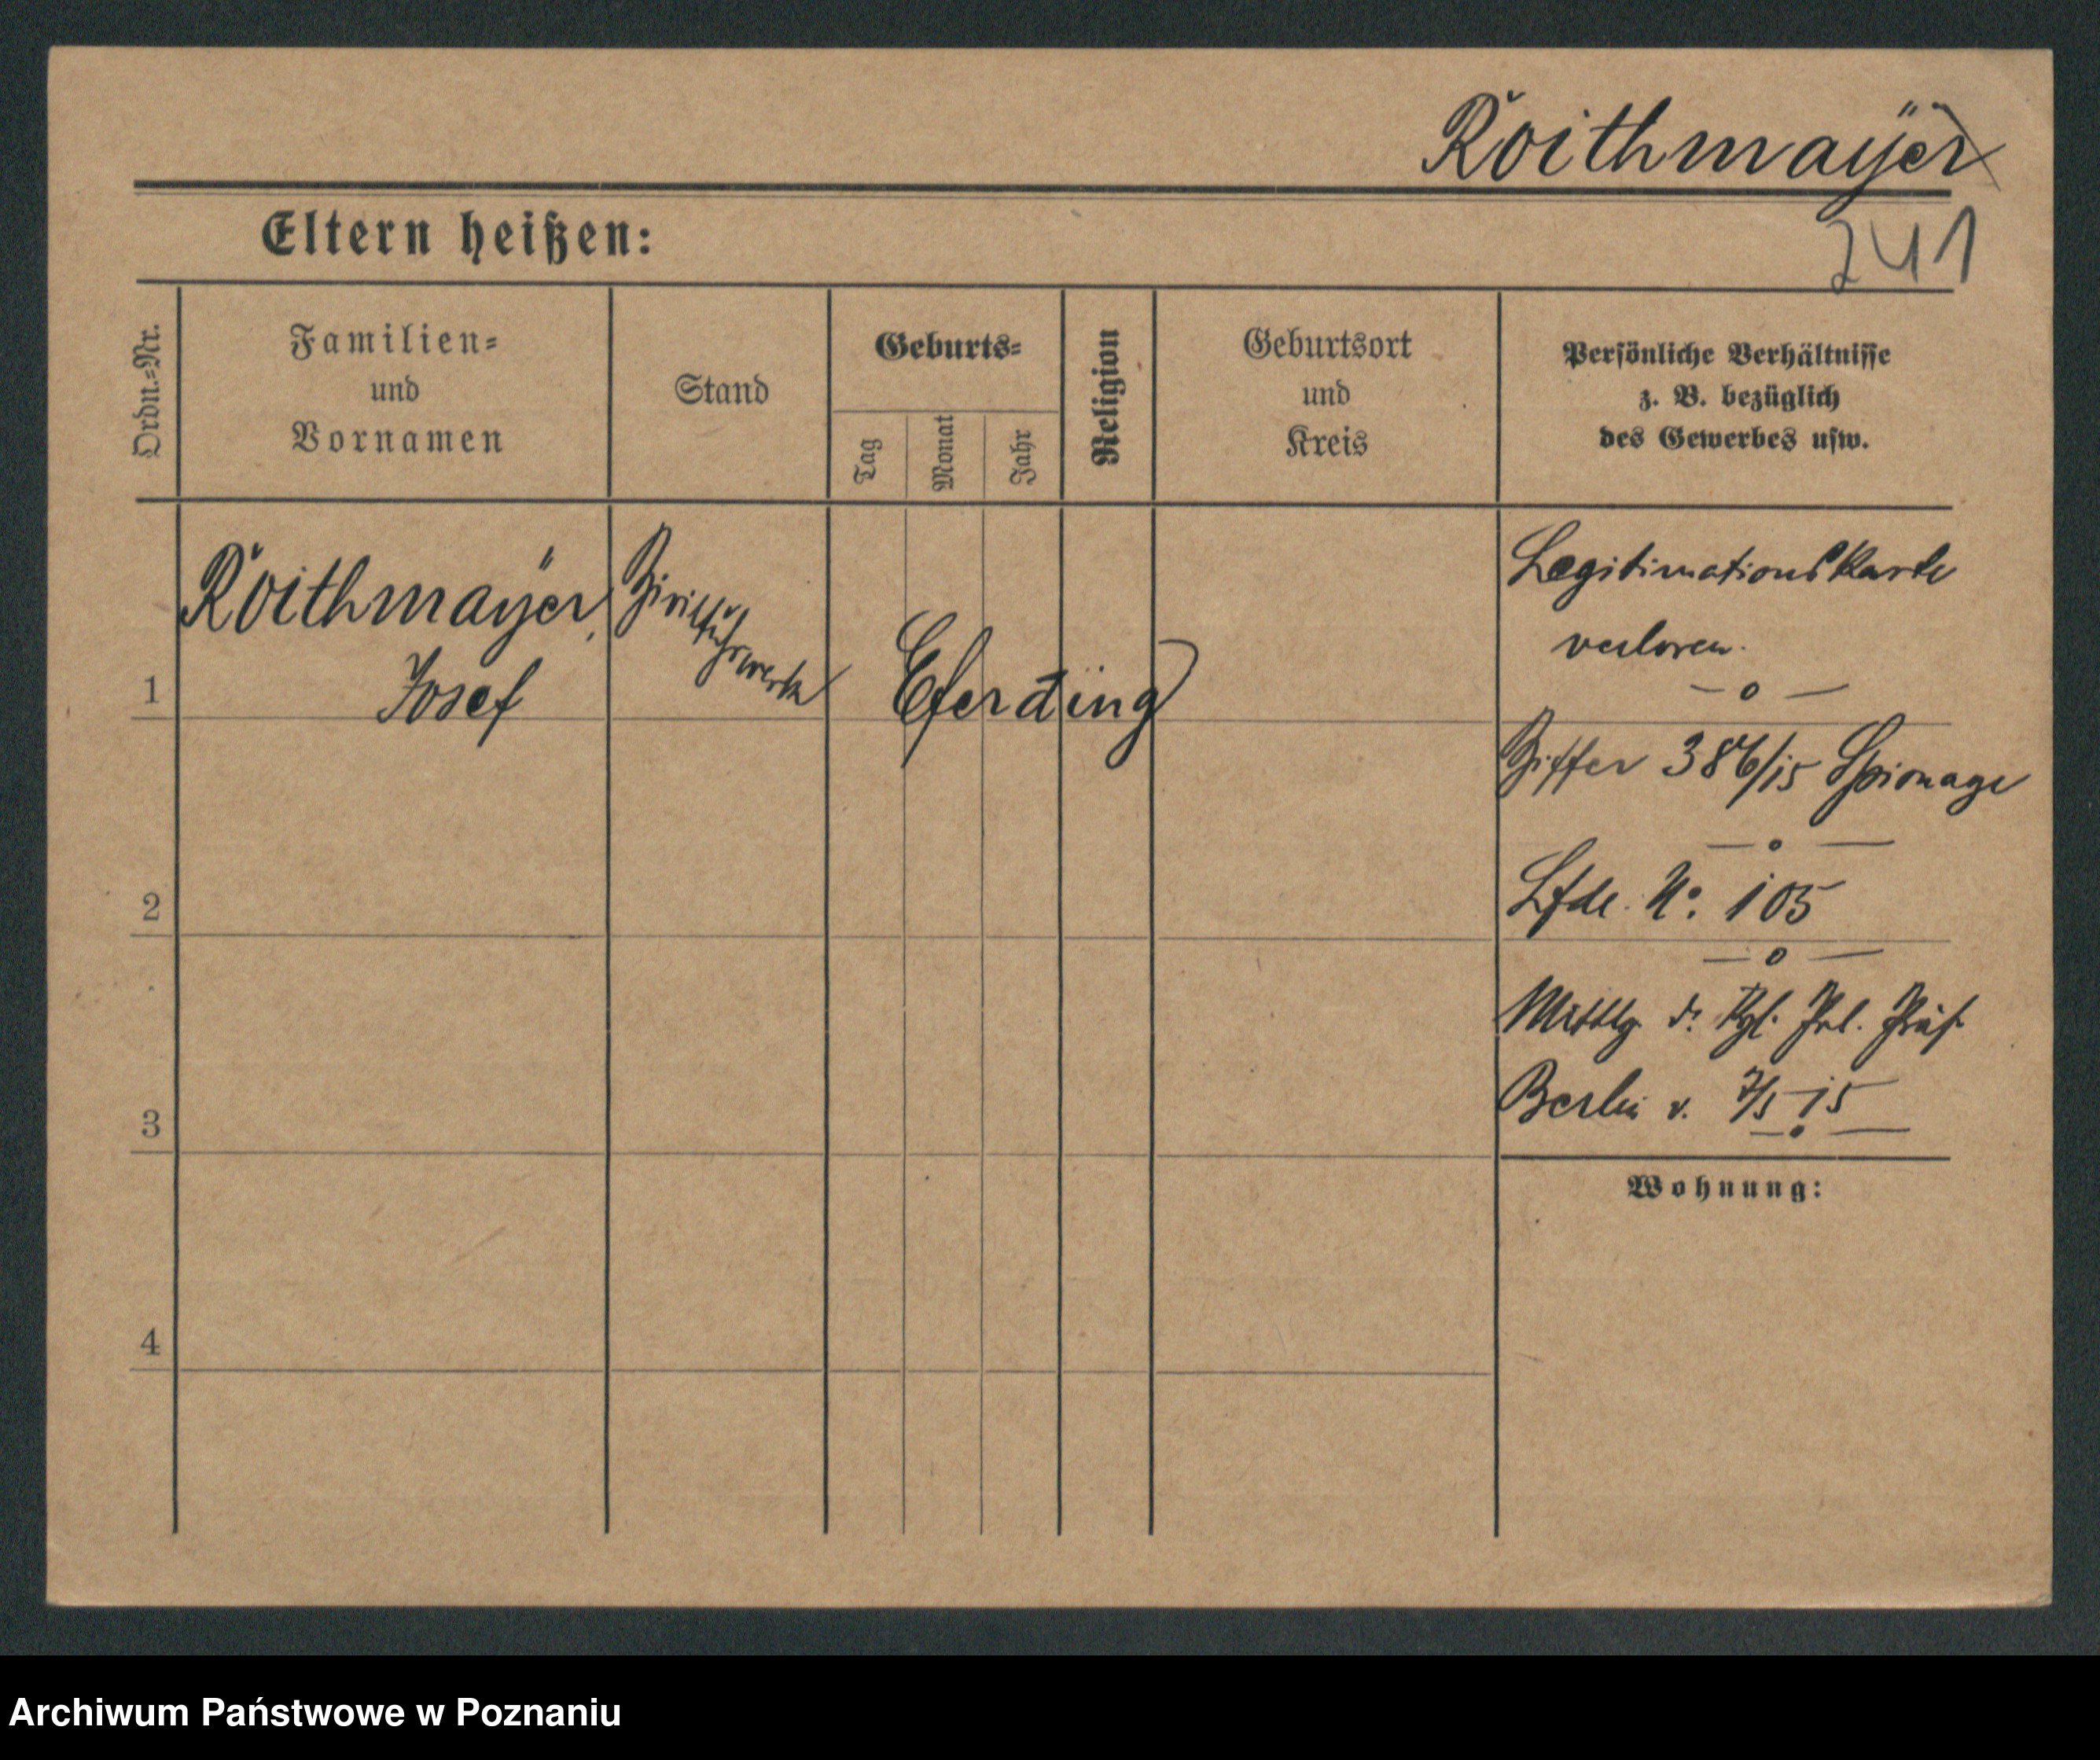 Roithmaÿer
Eltern heißen:
241
Ordn.=Nr.
Familien=
und
Vornamen
Stand
Geburts=
Tag
Monat
Jahr
Religion
Geburtsort
und
Kreis
Persönliche Verhältnisse
z. B. bezüglich
des Gewerbes usw.
1
Roithmaÿer,
Josef
Zivilfuhrwerk
Eferding
Legitimationskarte
verloren.
— o —
Ziffer 386/15 Spionage
— o —
Lfde. No. 105
— o —
Mittlg. d. Kgl. Pol. Präs.
Berlin v. 7/5 15
— o —
2
3
4
Wohnung:
Archiwum Państwowe w Poznaniu